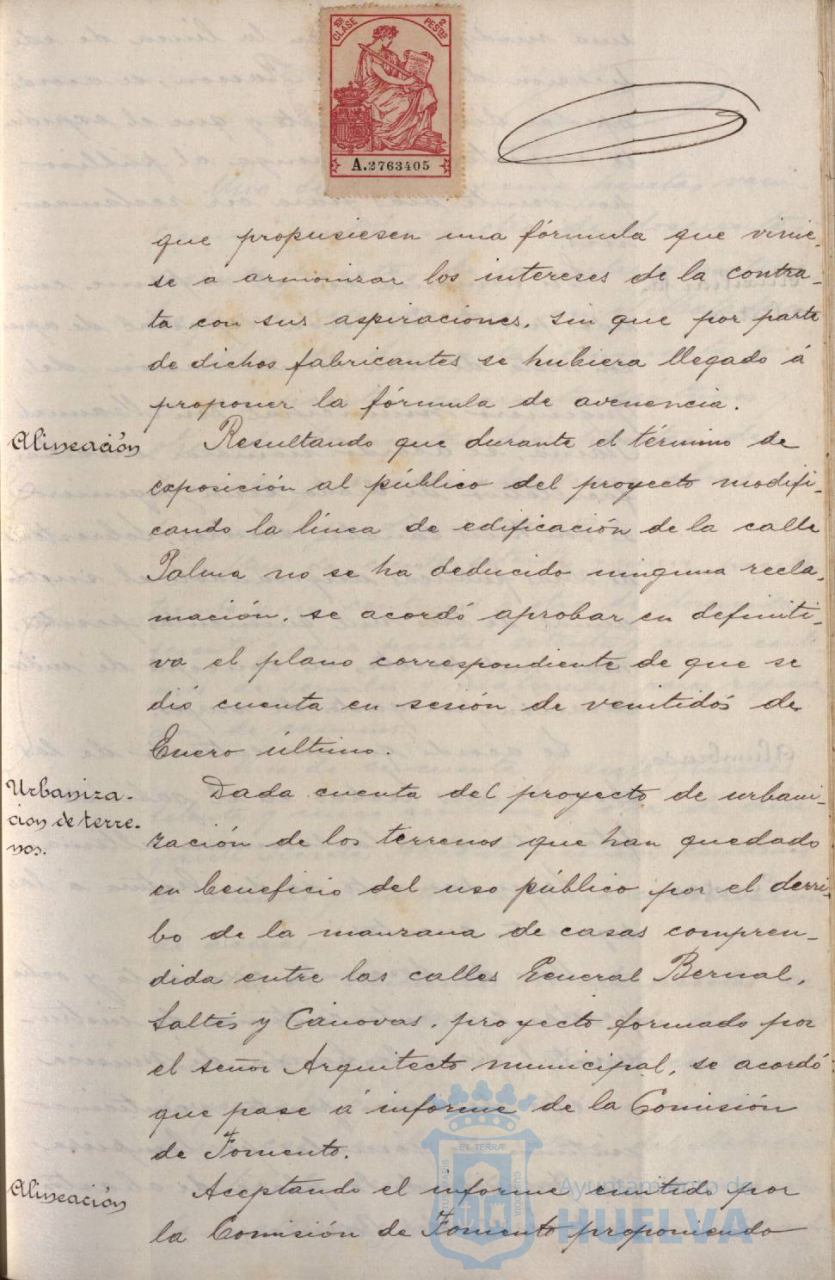 10ª CLASE 2 PESTAS
A.2763405
que propusiesen una fórmula que vinie-
se a armonizar los intereses de la contra-
ta con sus aspiraciones, sin que por parte
de dichos fabricantes se hubiera llegado á
proponer la fórmula de avenencia.
Alineación
Resultando que durante el término de
exposición al público del proyecto modifi-
cando la línea de edificación de la calle
Palma no se ha deducido ninguna recla-
mación, se acordó aprobar en definiti-
va el plano correspondiente de que se
dió cuenta en sesión de veintidós de
Enero último.
Urbaniza-
cion de terre-
nos.
Dada cuenta del proyecto de urbani-
zación de los terrenos que han quedado
en beneficio del uso público por el derri-
bo de la manzana de casas compren-
dida entre las calles General Bernal,
Saltés y Cánovas, proyecto formado por
el señor Arquitecto municipal, se acordó
que pase á informe de la Comisión
de Fomento.
Alineación
Aceptando el informe emitido por
la Comisión de Fomento proponiendo
Ayuntamiento de
HUELVA